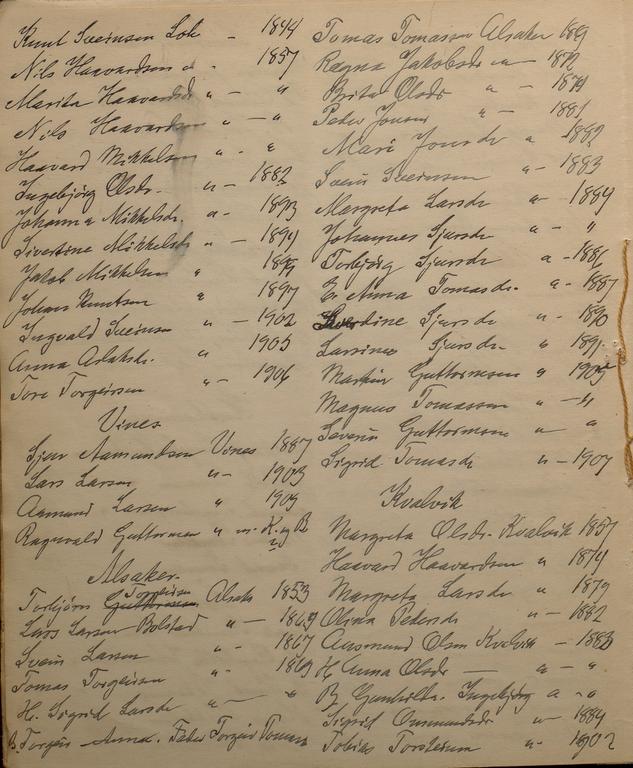 Knut Sveinsen Lote - 1844
Nils Haavardsen " - 1857
Marita Haavardsdr " - "
Nils Haavardsen " - "
Haavard Mikkelsen " - "
Ingebjörg Olsdr. " - 1882
Johanna Mikkelsdr. " - 1893
Sivertine Mikkelsdr " - 1894
Jakob Mikkelsen "
Johans Knutsen " 1897
Ingvald Sveinsen " - 1902
Anna Aslaksdr. " 1905
Tore Torgeirsen " - 1906
Vines
Sjur Aamundsen Vines 1887
Lars Larsen " - 1903
Aamund Larsen " 1905
Ragnvald Guttormsen " m. K. og B
Alsaker.
Torbjörn Torgeirsen Alsaker 1853
Lars Larsen Bolstad " - 1862
Svein Larsen " - 1867
Tomas Torgeirsen " - 1869
H. Sigrid Larsdr " - "
B. Torgeir - Anna. Fader Torgeir Tomas
Tomas Tomassen Alsaker 1889
Ragna Jakobsdr " - 1872
Brita Olsdr " - 1874
Peder Jonsen " - 1881
Mari Jonsdr " 1882
Svein Sveinsen - 1883
Margreta Larsdr " - 1884
Johannes Sjursen " - "
Torbjörg Sjursdr " - 1886
E. Anna Tomasdr. " - 1887
Sverdine Sjursdr " - 1890
Larsine Sjursdr " 1891.
Martin Guttormsen " 1905
Magnus Tomassen " - "
Severin Guttormsen " - "
Sigrid Tomasdr " - 1907
Kvalvik
Margreta Olsdr. Kvalvik 1857
Haavard Haavardsen " 1874
Margreta Larsdr " 1879
Olina Pedersdr " - 1882
Aasmund Olsen Kvalvik - 1883
H. Anna Olsdr - " - "
B. Gunhilde. Ingebjörg " - "
Sigrid Ommundsdr " - 1884
Tobias Torsteinsen " - 1902